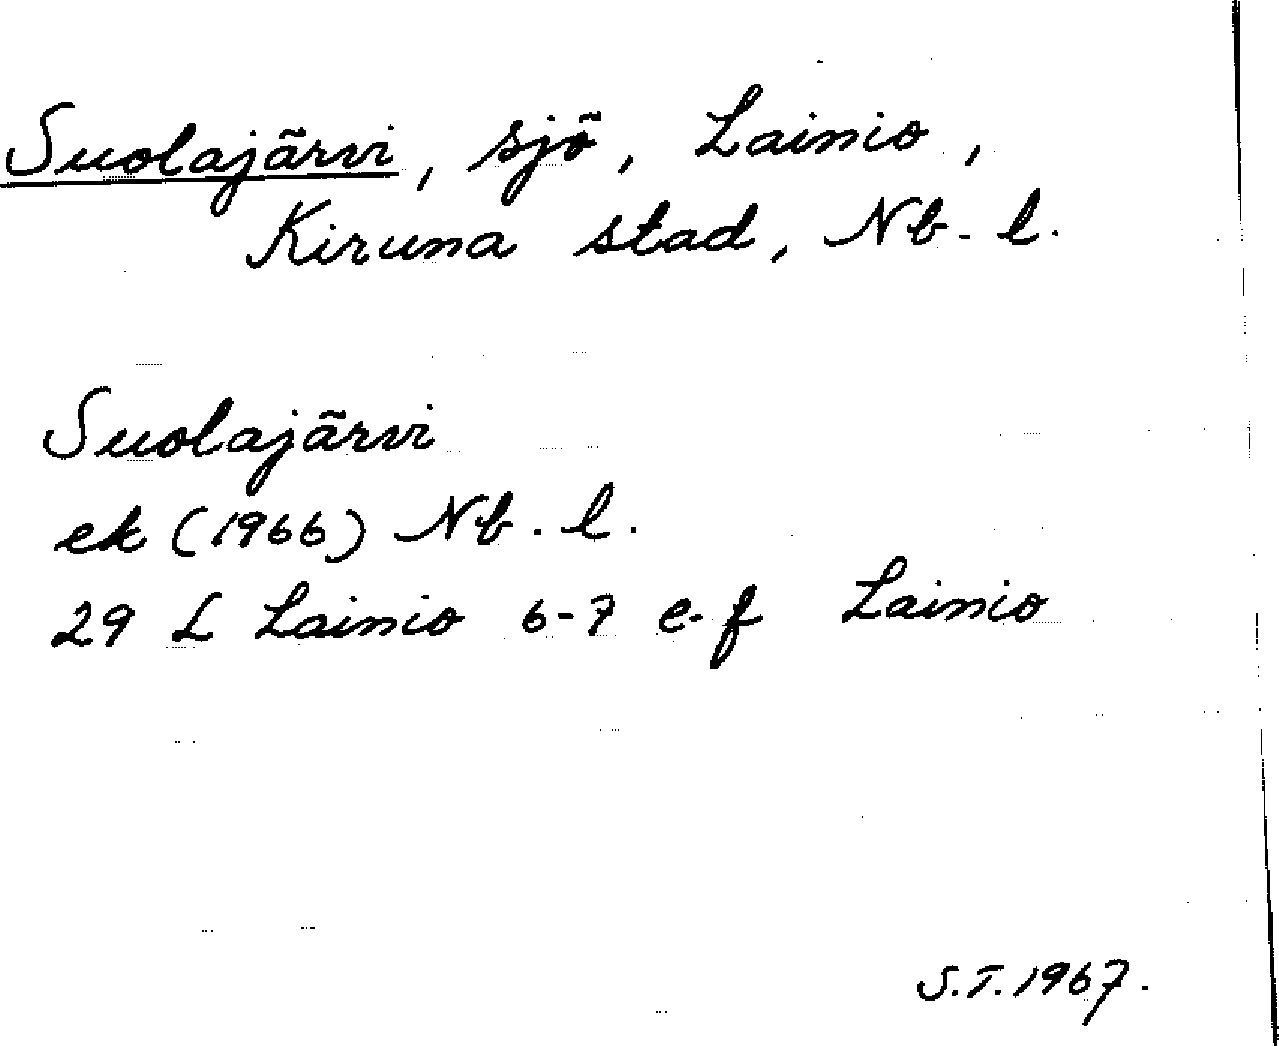 Suolajärvi, sjö, Lainio,
Kiruna stad, Nb. l.
Suolajärvi
ek (1966) Nb. l.
29 L Lainio 6-7 e-f Lainio
S.T. 1967.